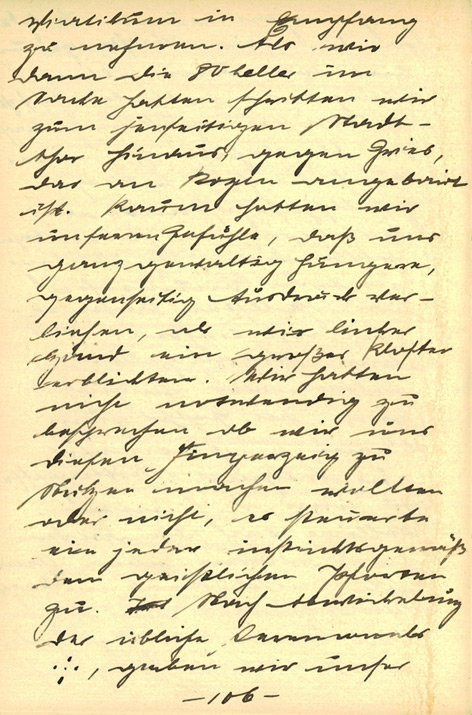 Viatikum in Empfang
zu nehmen. Als wir
dann die 80 Heller im
Sacke hatten schritten wir
zum jenseitigen Stadt-
thor hinaus, gegen Gries,
das an Bozen angebaut
ist. Kaum hatten wir
unseren Gefühle, daß uns
ganz gewaltig hungere,
gegenseitig Ausdruck ver-
liehen, als wir linker
Hand ein großes Kloster
erblickten. Wir hatten
nicht notwendig zu
besprechen ob wir uns
diesen Fingerzeig zu
Nutzen machen wollten
oder nicht, es steuerte
ein jeder instinktsgemäß
den geistlichen Pforten
zu. Nach Abwickelung
der übliche Ceremonals
∴, gaben wir unser
—106—